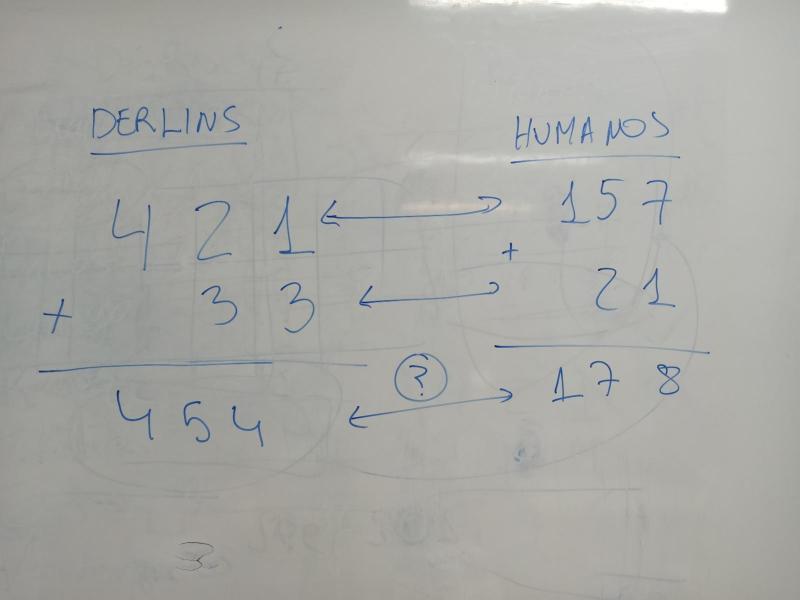 DERLINS HUMANOS
421 157
+ 33 + 21
454 ? 178
3